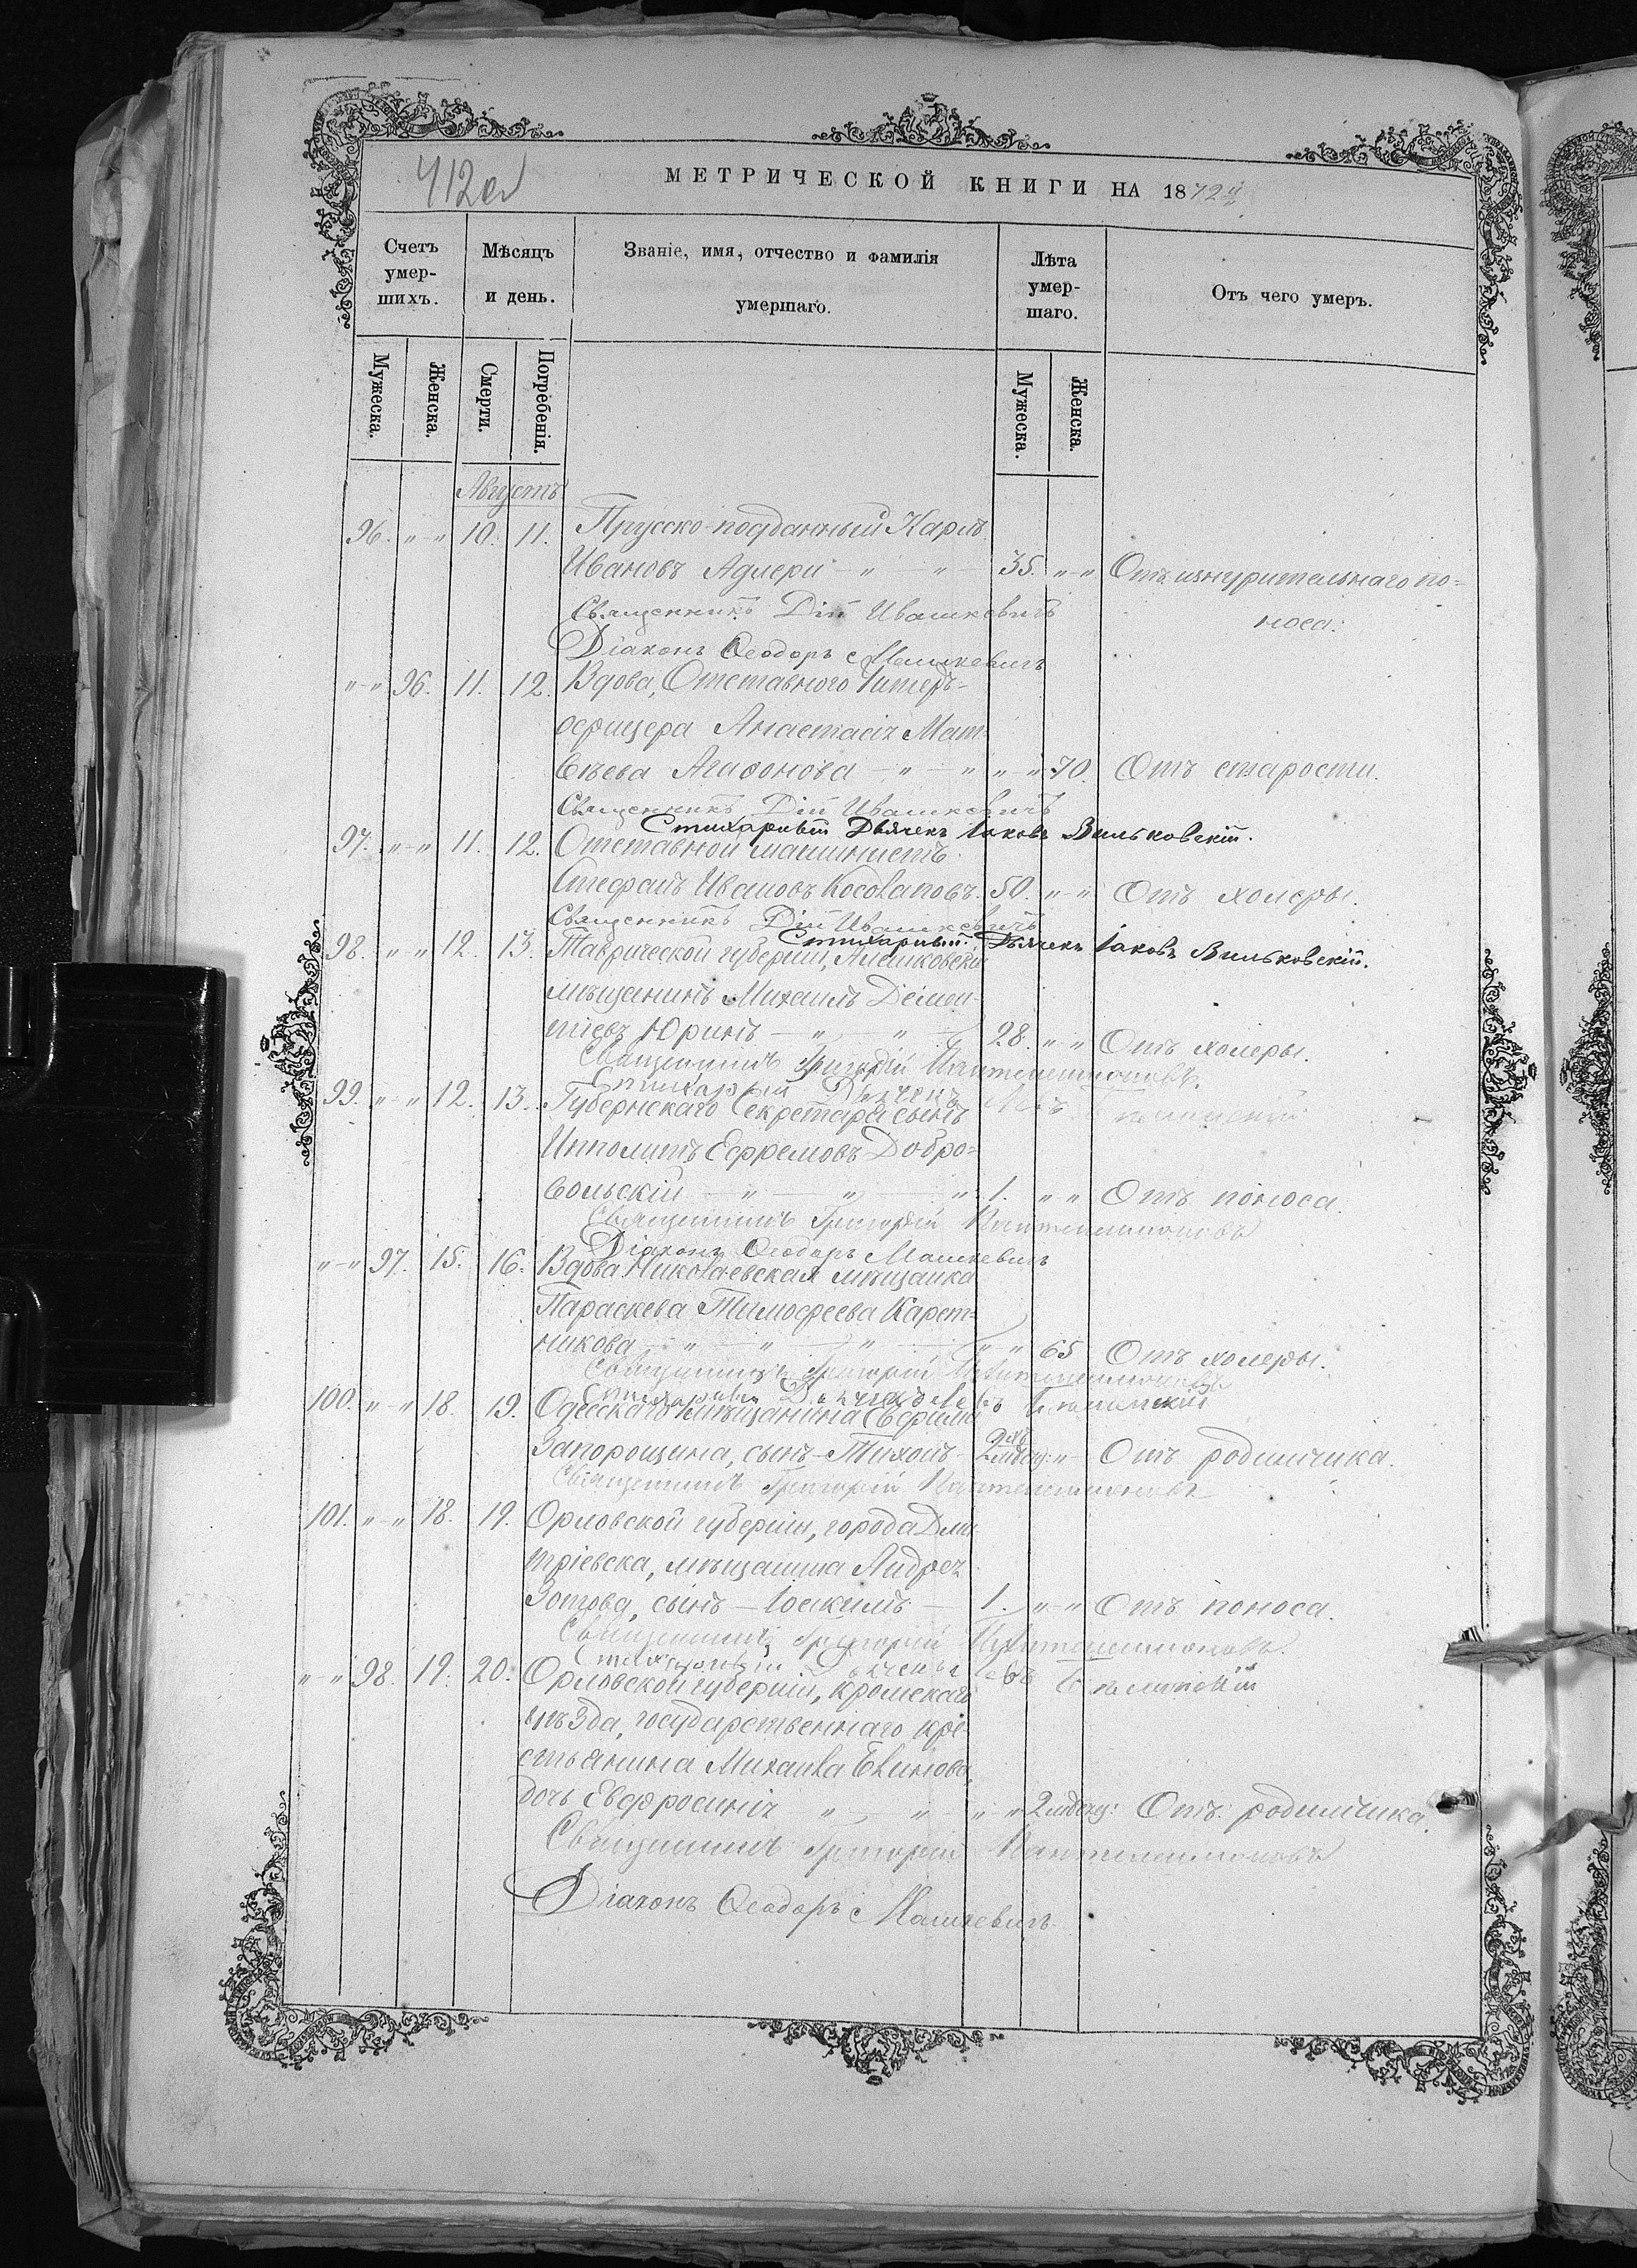 412об
МЕТРИЧЕСКОЙ КНИГИ НА 1872й
Счетъ умер- шихъ.
Мѣсяцъ и день.
Званіе, имя, отчество и фамилія умершаго.
Лѣта умер- шаго.
Отъ чего умеръ.
Мужеска. Женска. Смерти. Погребенія. Мужеска. Женска.
Августъ
96. „-„ 10. 11. Прусско-подданный Карлъ
Ивановъ Адлери „ „ 35. „-„ Отъ изнурительнаго по=
Священникъ Дій Ивашкевичъ носа.
Діаконъ Ѳеодоръ Машкевичъ
„-„ 96. 11. 12. Вдова, Отставного Унтеръ-
офицера Анастасія Мат-
вѣева Агаѳонова „ „ „-„ 70. Отъ старости.
Священникъ Дій Ивашкевичъ
Стихарный Дьячекъ Іаковъ Вильковскій.
97. „-„ 11. 12. Отставной машинистъ
Стефанъ Ивановъ Косолаповъ. 50. „-„ Отъ холеры.
Священникъ Дій Ивашкевичъ
Стихарный Дьячекъ Іаковъ Вильковскій.
98. „-„ 12. 13. Таврической губерніи, Алешковскій
мѣщанинъ Михаилъ Демен-
тіевъ Юринъ „ „ 28. „ „ Отъ холеры.
Священникъ Григорій Пантелеимоновъ.
Стихарный Дьячекъ
99. „-„ 12. 13. Губернскаго Секретаря сынъ
Ипполитъ Ефремовъ Добро=
вольскій „ „ „ 1. „ „ Отъ поноса.
Священникъ Григорій Пантелеимоновъ
Діаконъ Ѳеодоръ Машкевичъ
„-„ 97. 15. 16. Вдова Николаевская мѣщанка
Параскева Тимофеева Карет-
никова „ „ „ „ „ 65 Отъ холеры.
Священникъ Григорій Пантелеимоновъ
Стихарный Дьячекъ Левъ
100. „-„ 18. 19. Одесскаго мѣщанина Евфима
Запорощина, сынъ-Тихонъ- 2хъ мѣсяц: „ Отъ родимчика.
Священникъ Григорій Пантелеимоновъ
101. „-„ 18. 19. Орловской губерніи, города Дми
тріевска, мѣщанина Андрея
Зотова, сынъ - Іоакимъ - 1. „-„ Отъ поноса.
Священникъ Григорій Пантелеимоновъ.
Стихарный Дьячекъ Левъ
„-„ 98. 19. 20. Орловской губерніи, Кромскаго
уѣзда, государственнаго кре-
стьянина Михаила
дочь Евфросинія „ „ „ „ 2 мѣсяц: Отъ родимчика.
Священникъ Григорій Пантелеимоновъ
Діаконъ Ѳеодоръ Машкевичъ.